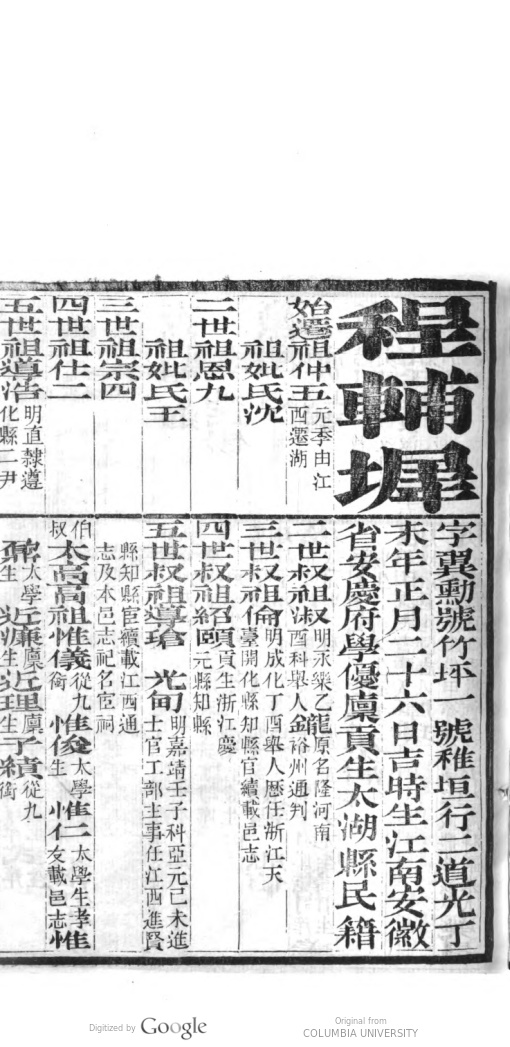 程輔墀
字翼勳號竹坪一號稚垣行二道光丁
未年正月二十六日吉時生江南安徽
省安慶府學優廩貢生太湖縣民籍
始遷祖仲五元季由江
西遷湖
祖妣氏沈
二世祖恩九
祖妣氏王
三世祖宗四
四世祖仕二
五世祖導浩明直隸遵
化縣二尹
二世叔祖淑明永樂乙
酉科舉人龍原名隆河南
裕州通判
三世叔祖倫明成化丁酉舉人歷任浙江天
臺開化縣知縣官績載邑志
四世叔祖紹頤貢生浙江慶
元縣知縣
五世叔祖導瑲 光甸明嘉靖壬子科亞元己未進
士官工部主事任江西進賢
縣知縣宦績載江西通
志及本邑志祀名宦祠
伯
叔太高高祖惟儀從九
銜惟俊太學
生惟仁太學生孝
友載邑志惟
太學
生近濂廩
生近理廩
生子績從九
銜
Digitized by Google
Original from
COLUMBIA UNIVERSITY